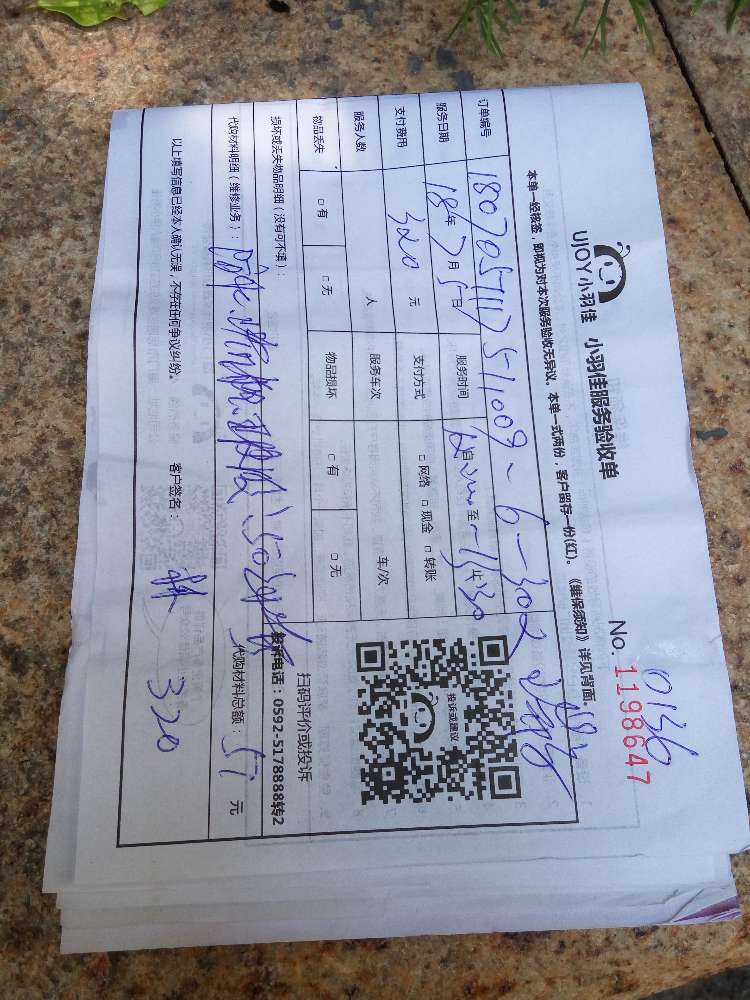 UJOY小羽佳 小羽佳服务验收单
0136
No. 1198647
本单一经核签,即视为对本次服务验收无异议。本单一式两份,客户留存一份(红)。《维保须知》详见背面。
订单编号
服务日期 18年7月5日 服务时间 自 至 止
支付费用 320元 支付方式 □网络 □现金 □转账
服务人数 人 服务车次 车/次
物品丢失 □有 □无 物品损坏 □有 □无
投诉或建议
扫码评价或投诉
损坏或丢失物品明细(没有可不填): 投诉电话:0592-5178888转2
代购材料明细(维修业务): 代购材料总额: 元
以上填写信息已经本人确认无误,不存在任何争议纠纷。 客户签名: 林 320